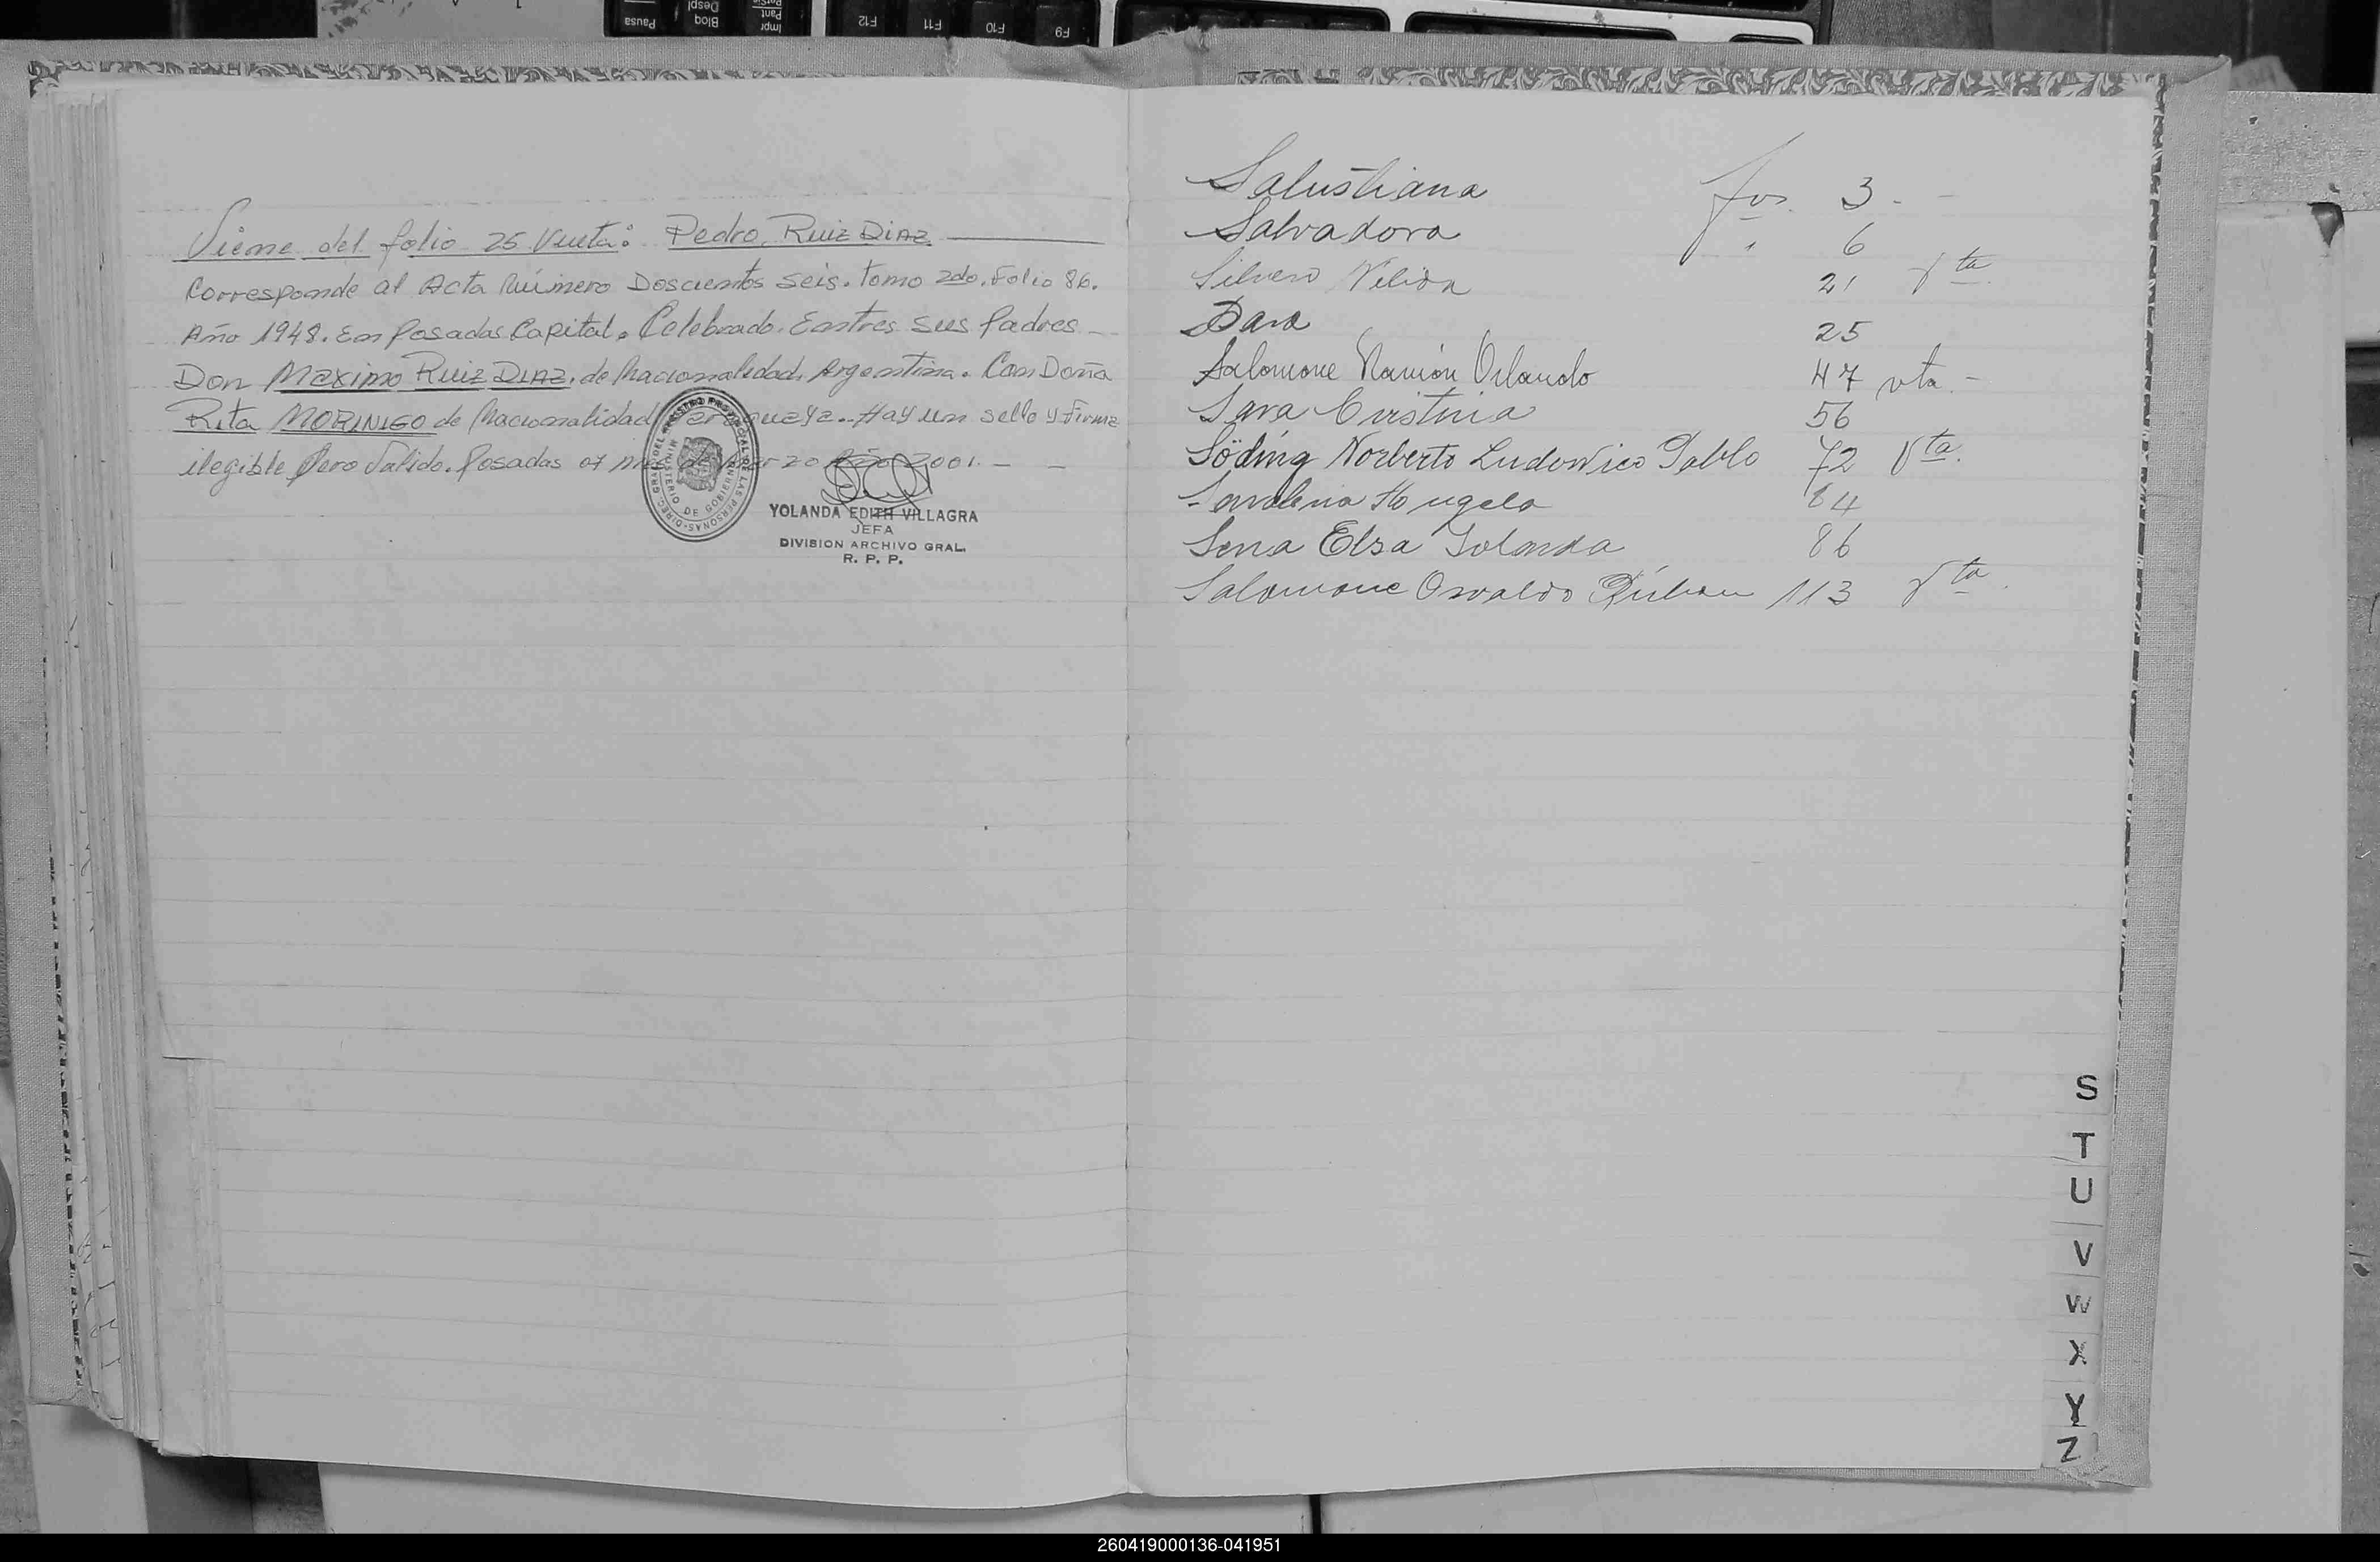 Pausa
Despl
Bloq
Impr
Pant
PetSis
F12
F11
F10
F9
Viene del folio 25 Vuelta: Pedro Ruiz Diaz
Corresponde al Acta Número Doscientos Seis. Tomo 2do. Folio 86.
Año 1948. En Posadas Capital. Celebrado. Entres sus Padres
Don Maximo Ruiz DIAZ. de Nacionalidad. Argentina. Con Doña
Rita MORINIGO de Nacionalidad Paraguaya.. Hay un sello y firma
ilegible Pero Valido. Posadas 07 de Marzo Año 2001. —
DIREC. GRAL. DEL REGISTRO PROVINCIAL DE LAS PERSONAS
MINISTERIO DE GOBIERNO
YOLANDA EDITH VILLAGRA
JEFA
DIVISION ARCHIVO GRAL.
R. P. P.
Salustiana fos. 3. -
Salvadora " 6
Silvero Nelida 21 Vta
Sara 25
Salomone Ramón Orlando 47 vta -
Sara Cristina 56
Söding Norberto Ludowico Pablo 72 Vta.
84
Sena Elsa Yolanda 86
Salomone Osvaldo Rúben 113 Vta.
S
T
U
V
W
X
Y
Z
260419000136-041951